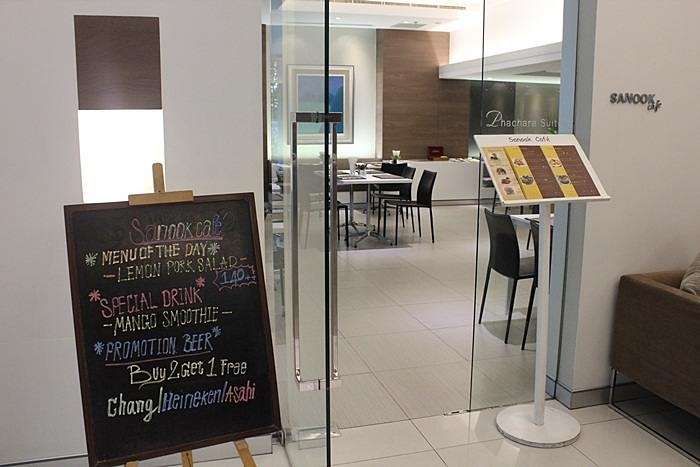 Sanook café
MENU OF THE DAY
- LEMON PORK SALAD -
140.-
SPECIAL DRINK
- MANGO SMOOTHIE -
PROMOTION BEER
Buy 2 Get 1 Free
Chang/Heineken/Asahi
Phachara Suite
Sanook Café
SANOOK
cafe